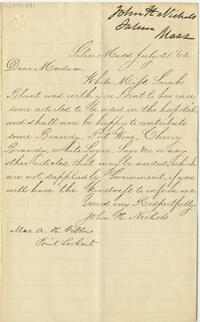 John H. Nichols
Salem
Mass
Salem Mass July 21 '63
Dear Madam
While Miss Sarah
Blunt was with you I sent to her care
some articles to be used in the hospital
and shall now be happy to contribute
some Brandy, Port Wine, Cherry
Brandy, white Sugar, Sago &c or any
other articles that may be needed, which
are not supplied by Government, if you
will have the kindness to inform me.
Yours very Respectfully
John H. Nichols
Mrs A. H. Gibbons
Point Lookout